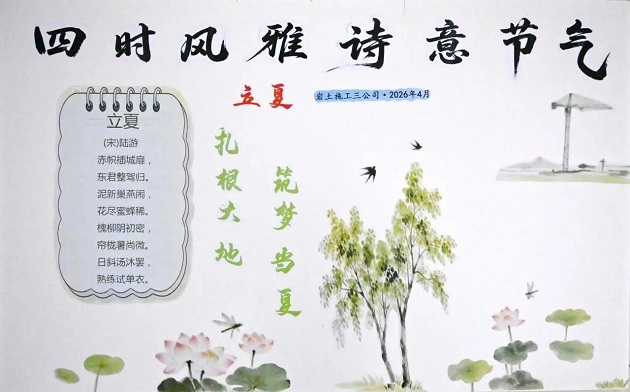 四时风雅 诗意节气
立夏
岩土施工三公司·2026年4月
立夏
(宋)陆游
赤帜插城扉，
东君整驾归。
泥新巢燕闹，
花尽蜜蜂稀。
槐柳阴初密，
帘栊暑尚微。
日斜汤沐罢，
熟练试单衣。
扎根大地
筑梦当夏